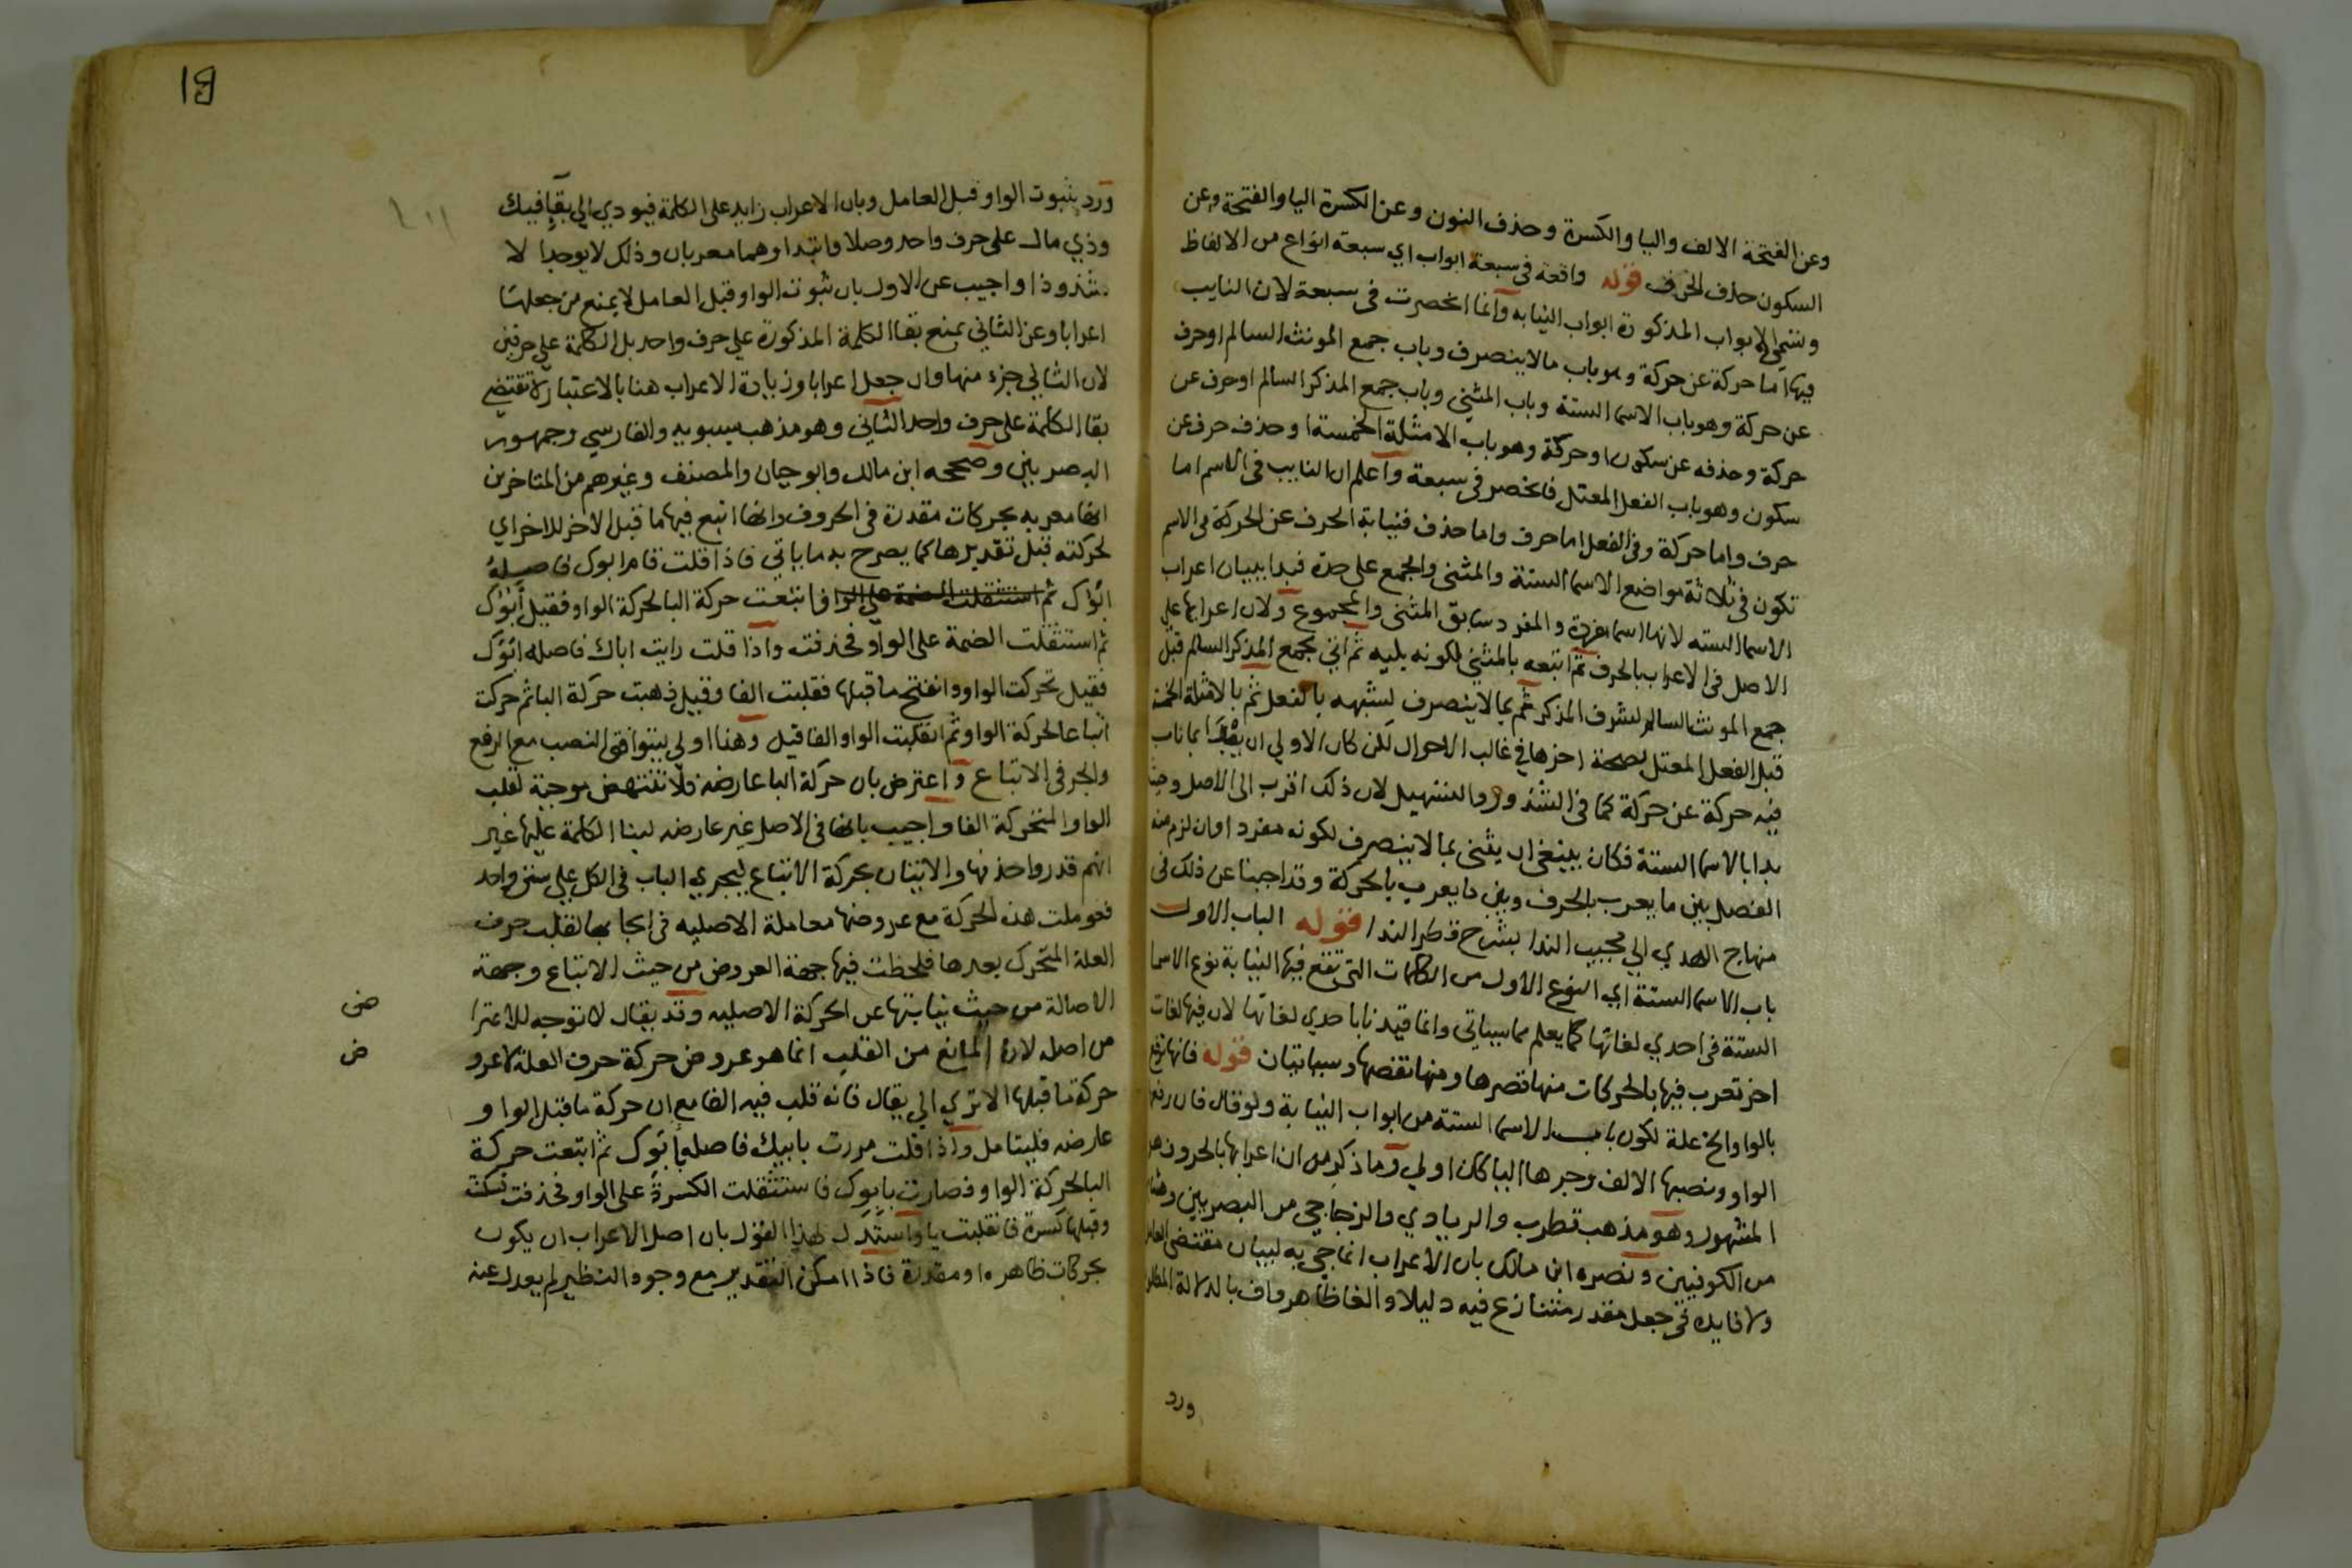 وعن الفتحة الالف واليا والكسرة وحذف النون وعن الكسرة اليا والفتحة وعن
السكون حذف الحرف قوله واقعة في سبعة ابواب اي سبعة انواع من الالفاظ
وتسمى الابواب المذكورة ابواب النيابه وانما انحصرت في سبعة لان النايب
فيها اما حركة عن حركة وهو باب مالاينصرف وباب جمع المونث السالم اوحرف
عن حركة وهو باب الاسما الستة وباب المثني وباب جمع المذكر السالم اوحرف عن
حركة وحذفه عن سكون او حركة وهو باب الامثلة الخمسة او حذف حرف عن
سكون وهو باب الفعل المعتل فانحصر في سبعة واعلم ان النايب في الاسم اما
حرف واما حركة وفي الفعل اما حرف واما حذف فنيابة الحرف عن الحركة في الاسم
تكون في ثلاثة مواضع الاسما الستة والمثنى والجمع على حدة فبدا ببيان اعراب
الاسما السته لانها اسما مفردة والمفرد سابق المثنى والمجموع ولان اعرابها علي
الاصل في الاعراب بالحرف ثم اتبعه بالمثني لكونه يليه ثم اتي بجمع المذكر السالم قبل
جمع المونث السالم لشرف المذكر ثم بما لاينصرف لشبهه بالفعل ثم بالامثلة الخمسة
قبل الفعل المعتل لصحة اخرها في غالب الاحوال لكن كان الاولي ان بما ناب
فيه حركة عن حركة كما في الشذور والتسهيل لان ذلك اقرب الى الاصل وحيث
بدا بالاسما الستة فكان ينبغي ان يثنى بما لاينصرف لكونه مفردا وان لزم منه
الفصل بين ما يعرب بالحرف وبين ما يعرب بالحركة وقد اجبنا عن ذلك في
منهاج الهدي الي مجيب الندا بشرح قطر الندا قوله الباب الاول
باب الاسما الستة اي النوع الاول من الكلمات التي تقع فيها النيابة نوع الاسما
الستة في احدي لغاتها كما يعلم مما سياتي وانما قيدنا باحدي لغاتها لان فيها لغات
اخر تعرب فيها بالحركات منها قصرها ومنها نقصها وسياتيان قوله فانها ترفع
بالواو الخ علة لكون باب الاسما الستة من ابواب النيابة ولو قال فان رفعها
الواو ونصبها الالف وجرها اليا كان اولي وما ذكر من ان اعرابها بالحروف هو
المشهور وهو مذهب قطرب والزيادي والزجاجي من البصريين وهشام
من الكوفيين ونصره ابن مالك بان الاعراب انما جي به لبيان مقتضى العامل
ولا فايدة في جعل مقدر متنازع فيه دليلا والغا ظاهر واف بالدلالة المطلوبة
ورد
ورد بثبوت الواو قبل العامل وبان الاعراب زايد على الكلمة فيودي الي بقا فيك
وذي مال على حرف واحد وصلا وابتدا وهما معربان وذلك لايوجد الا
شذوذا واجيب عن الاول بان ثبوت الواو قبل العامل لايمنع من جعلها
اعرابا وعن الثاني بمنع بقا الكلمة المذكورة علي حرف واحد بل الكلمة علي حرفين
لان الثاني جزء منها وان جعل اعرابا وزيادة الاعراب هنا بالاعتبار لا تقتضي
بقا الكلمة على حرف واحد الثاني وهو مذهب سيبويه والفارسي وجمهور
البصريين وصححه ابن مالك وابو حيان والمصنف وغيرهم من المتاخرين
انها معربه بحركات مقدرة في الحروف وانها اتبع فيها ما قبل الاخر للاخر اي
لحركته قبل تقديرها كما يصرح به ما ياتي فاذا قلت قام ابوك فاصله
ابوك ثم استثقلت الضمة علي الوا فاتبعت حركة البا لحركة الواو فقيل أبوك
ثم استثقلت الضمة على الواو فحذفت واذا قلت رايت اباك فاصله ابوك
فقيل تحركت الواو وانفتح ما قبلها فقلبت الفا وقيل ذهبت حركة البا ثم حركت
اتباعا لحركة الواو ثم انقلبت الواو الفا قيل وهذا اولي ليتوافق النصب مع الرفع
والجر في الاتباع واعترض بان حركة البا عارضه فلا تنتهض موجبة لقلب
الواو المتحركة الفا واجيب بانها في الاصل غير عارضه لبنا الكلمة عليها غير
انهم قدروا حذفها والاتيان بحركة الاتباع ليجري الباب في الكل علي سنن واحد
فعوملت هذه الحركة مع عروضها معاملة الاصليه في ايجابها لقلب حرف
العلة المتحرك بعدها فلحظت فيها جهة العروض من حيث الاتباع وجهة
الاصالة من حيث نيابتها عن الحركة الاصليه وقد يقال لا توجه للاعترا
ض
من اصله لان المانع من القلب انما هو عروض حركة حرف العلة لا عرو
ض
حركة ما قبلها الا تري الي يقال فانه قلب فيه الفا مع ان حركة ما قبل الواو
عارضه فليتامل واذا قلت مررت بابيك فاصله بأبوك ثم اتبعت حركة
البا لحركة الواو فصارت بابوك فاستثقلت الكسرة على الواو فحذفت فسكنت
وقبلها كسرة فانقلبت يا واستدل لهذا القول بان اصل الاعراب ان يكون
بحركات ظاهره او مقدرة فاذا امكن التقدير مع وجود النظير لم يعدل عنه